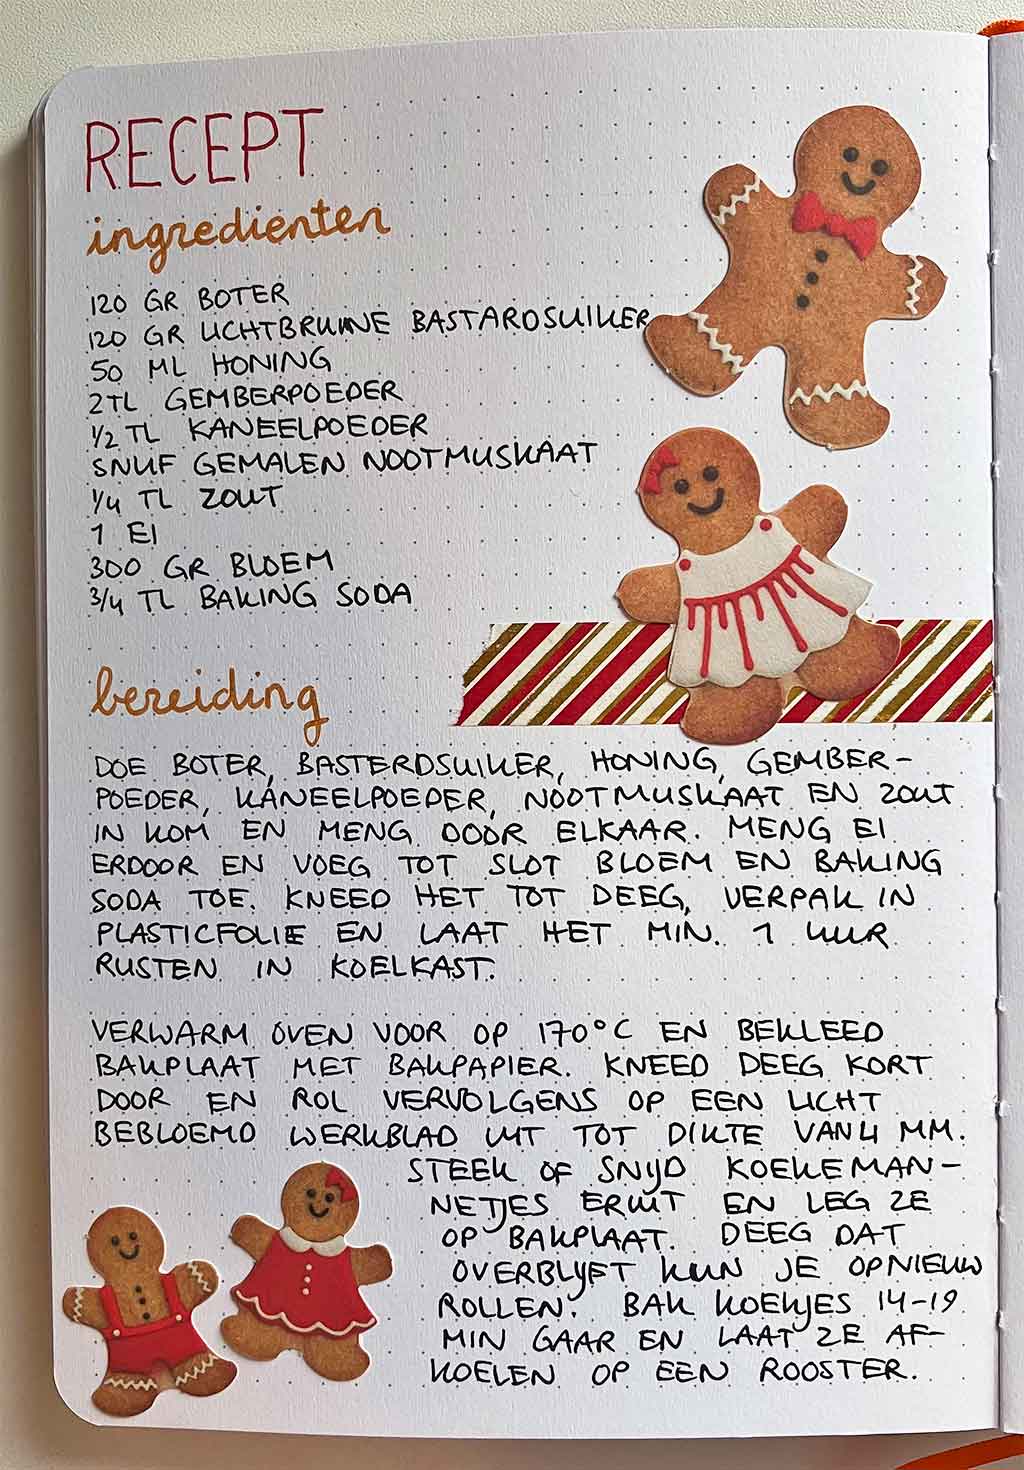 RECEPT
ingredienten
120 GR BOTER
120 GR LICHTBRUINE BASTARDSUIKER
50 ML HONING
2TL GEMBERPOEDER
1/2 TL KANEELPOEDER
SNUF GEMALEN NOOTMUSKAAT
1/4 TL ZOUT
1 EI
300 GR BLOEM
3/4 TL BAKING SODA
bereiding
DOE BOTER, BASTERDSUIKER, HONING, GEMBER-
POEDER, KANEELPOEDER, NOOTMUSKAAT EN ZOUT
IN KOM EN MENG DOOR ELKAAR. MENG EI
ERDOOR EN VOEG TOT SLOT BLOEM EN BAKING
SODA TOE. KNEED HET TOT DEEG, VERPAK IN
PLASTICFOLIE EN LAAT HET MIN. 1 UUR
RUSTEN IN KOELKAST.
VERWARM OVEN VOOR OP 170°C EN BEKLEED
BAKPLAAT MET BAKPAPIER. KNEED DEEG KORT
DOOR EN ROL VERVOLGENS OP EEN LICHT
BEBLOEMD WERKBLAD UIT TOT DIKTE VAN 4 MM.
STEEK OF SNIJD KOEKEMAN-
NETJES ERUIT EN LEG ZE
OP BAKPLAAT. DEEG DAT
OVERBLIJFT KUN JE OPNIEUW
ROLLEN. BAK KOEKJES 14-19
MIN GAAR EN LAAT ZE AF-
KOELEN OP EEN ROOSTER.